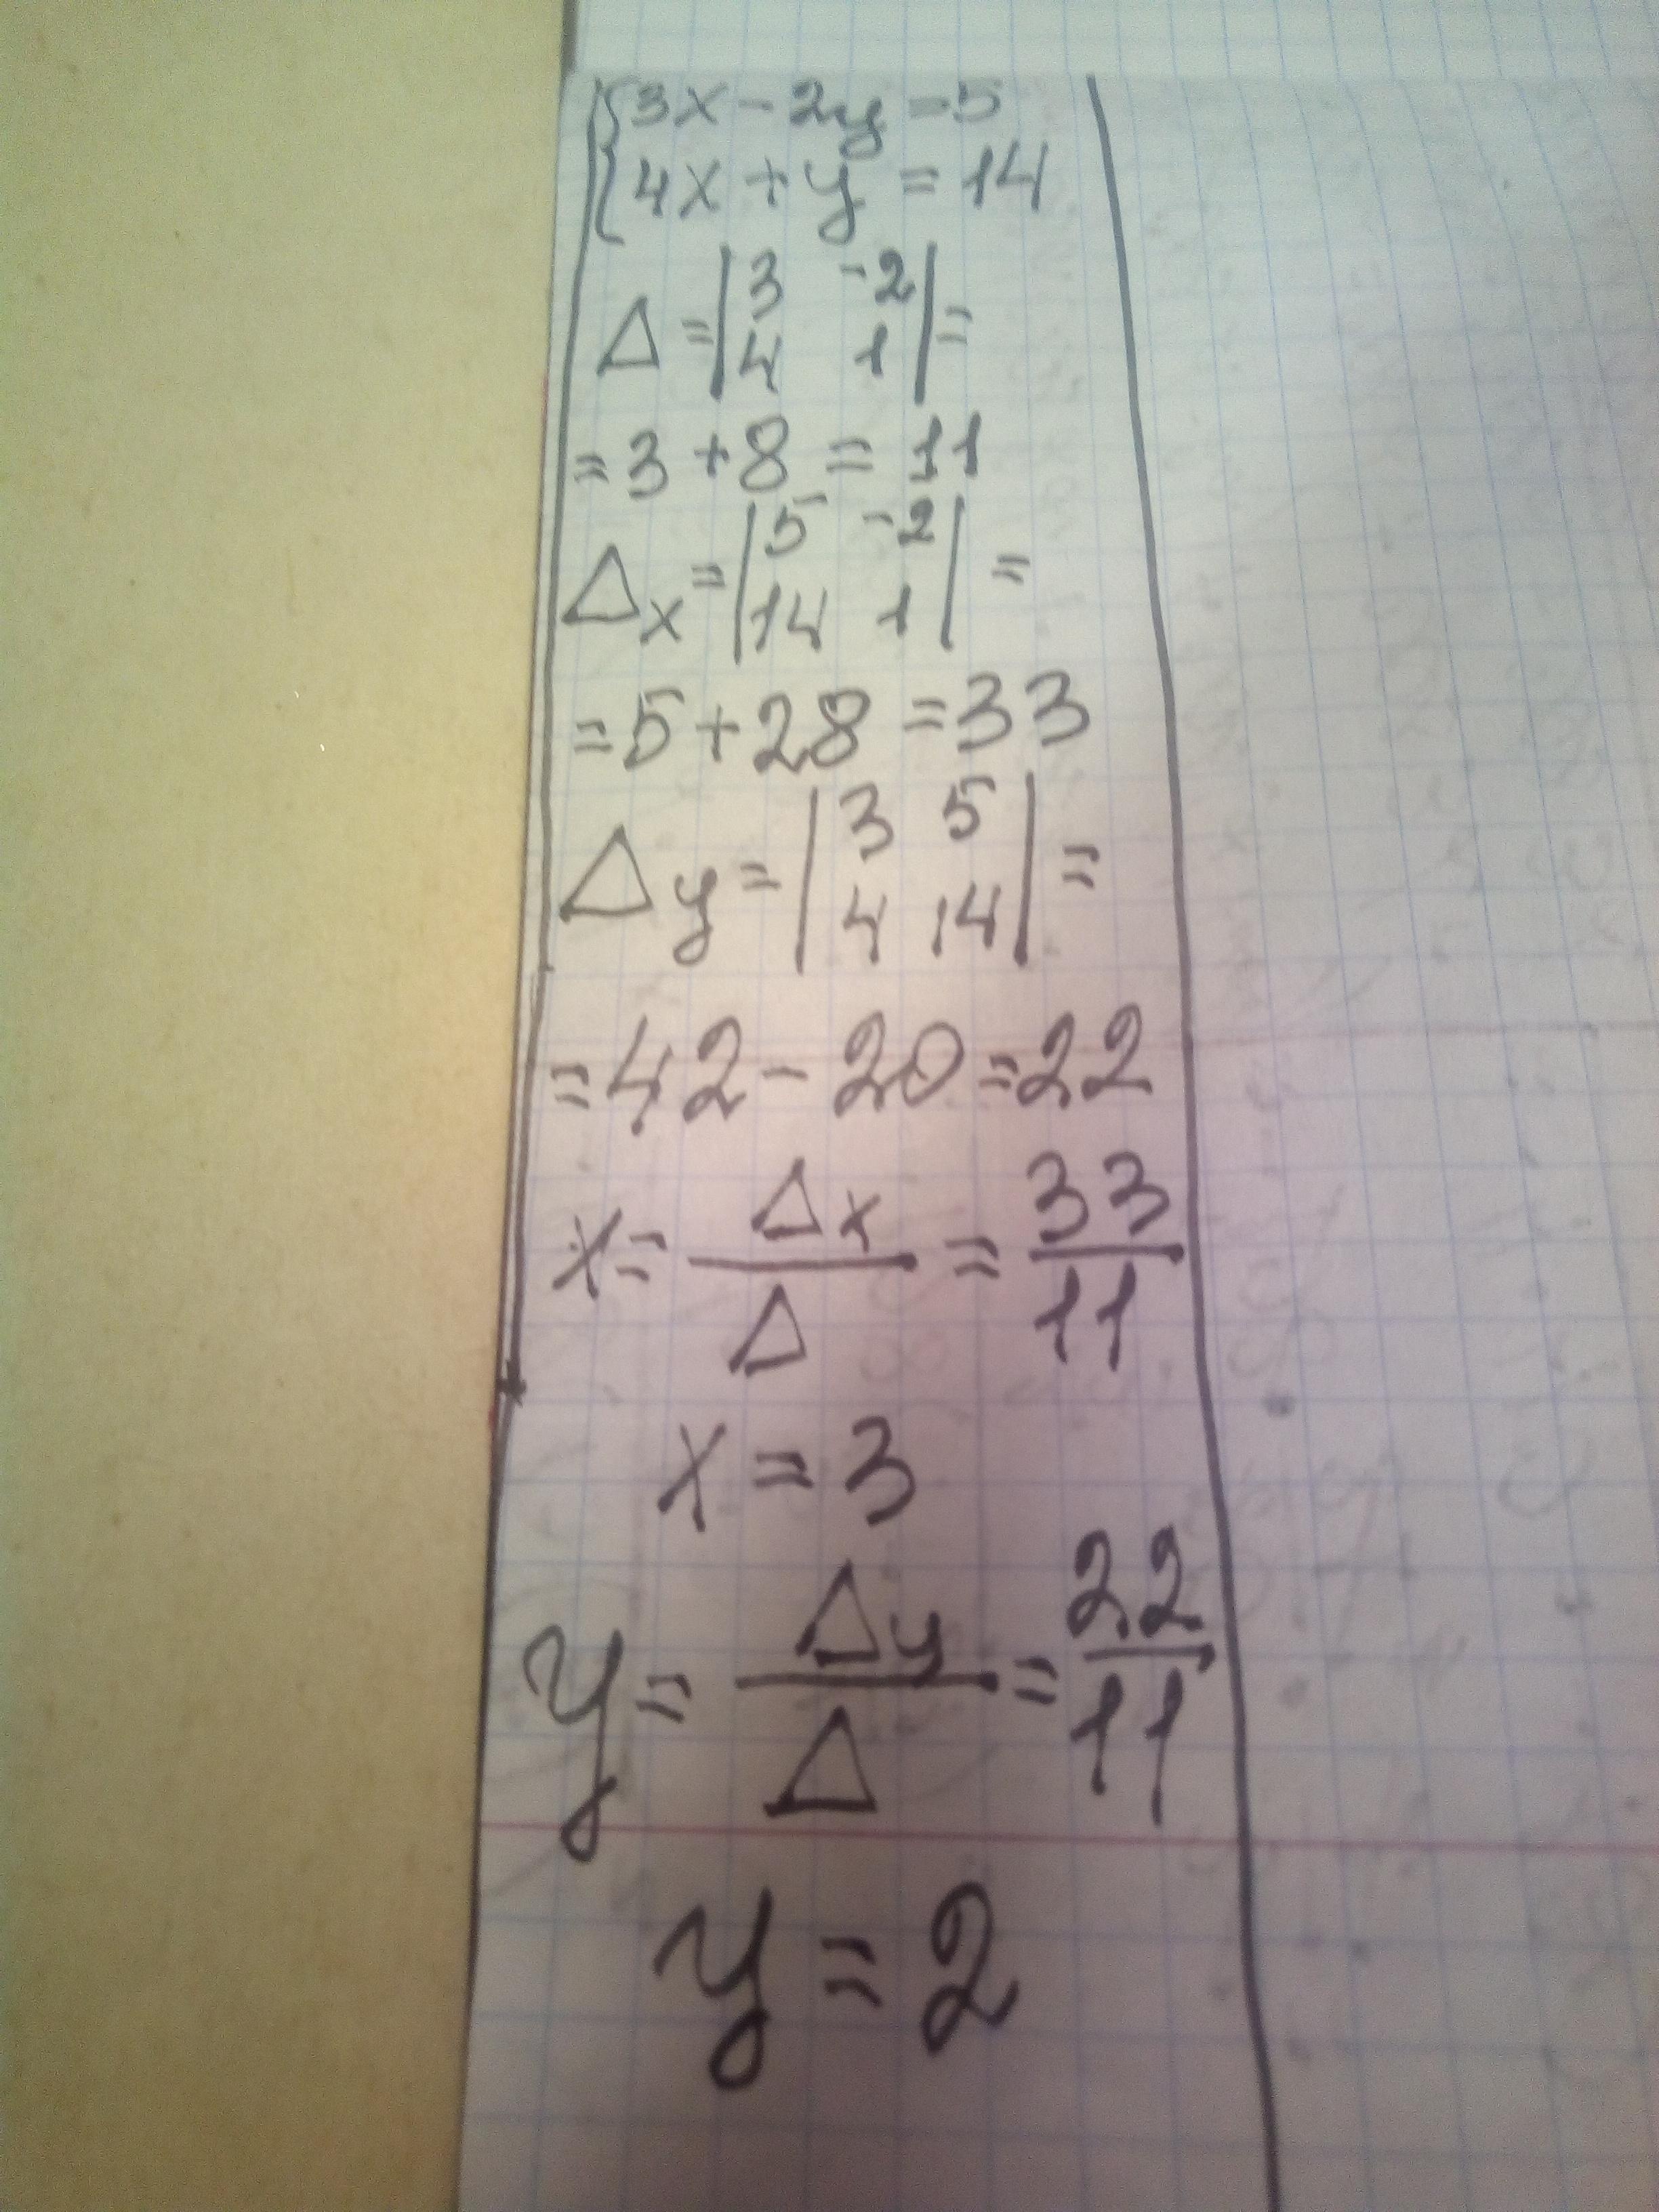 {3x - 2y = 5
{4x + y = 14
Δ = |3 -2| =
|4 1|
= 3 + 8 = 11
Δx = |5 -2| =
|14 1|
= 5 + 28 = 33
Δy = |3 5| =
|4 14|
= 42 - 20 = 22
x = Δx/Δ = 33/11
x = 3
y = Δy/Δ = 22/11
y = 2